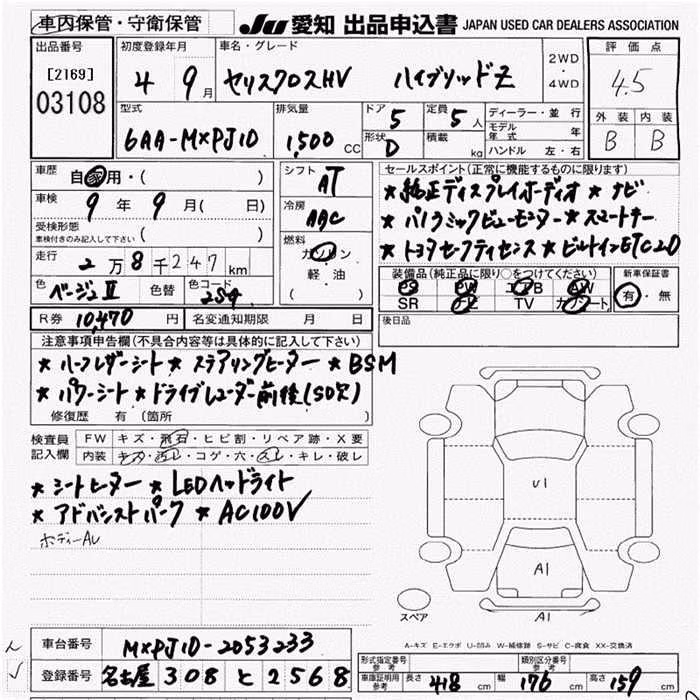 車内保管・守衛保管
JU 愛知 出品申込書 JAPAN USED CAR DEALERS ASSOCIATION
出品番号 [2169] 03108
初度登録年月 4 9月
車名・グレード ヤリスクロスHV ハイブリッドZ
2WD・4WD
評価点 4.5
外装 内装
B B
型式 6AA-MXPJ10
排気量 1,500 CC
ドア 5 定員 5人
形状 D 積載 kg
ディーラー・並行
モデル年式 年
ハンドル 左・右
車歴 自家用・( )
車検 9年 9月( 日)
受検形態
車検付きのみ記入して下さい( )
走行 2万8千247km
色 ベージュⅡ 色替 色コード 2S4
シフト AT
冷房 AAC
燃料 ガソリン
軽・油
( )
セールスポイント(正常に機能するものに限ります)
★純正ディスプレイオーディオ ★ナビ
★パノラミックビューモニター ★スマートキー
★トヨタセーフティセンス ★ビルトインETC2.0
装備品(純正品に限り○をつけてください)
PS PW エアB AW
SR ナビ TV カワシート
新車保証書 有・無
R券 10,470円 名変通知期限 月 日
後日品
注意事項申告欄(不具合内容等は具体的に記入して下さい)
★ハーフレザーシート ★ステアリングヒーター ★BSM
★パワーシート ★ドライブレコーダー前後(SD欠)
修復歴 有(箇所 )
検査員記入欄
FW キズ・飛石・ヒビ割・リペア跡・X要
内装 キズ・汚レ・コゲ・穴・スレ・キレ・破レ
★シートヒーター ★LEDヘッドライト
★アドバンストパーク ★AC100V
ボディーAU
U1
A1
A1
スペア
A-キズ E-エクボ U-凹み W-補修跡 S-サビ C-腐食 XX-交換済
車台番号 MXPJ10-2053233
登録番号 名古屋 308 と 2568
型式指定番号 参考 類別区分番号 参考
車庫証明用 参考 長さ 418cm 幅 176cm 高さ 159cm